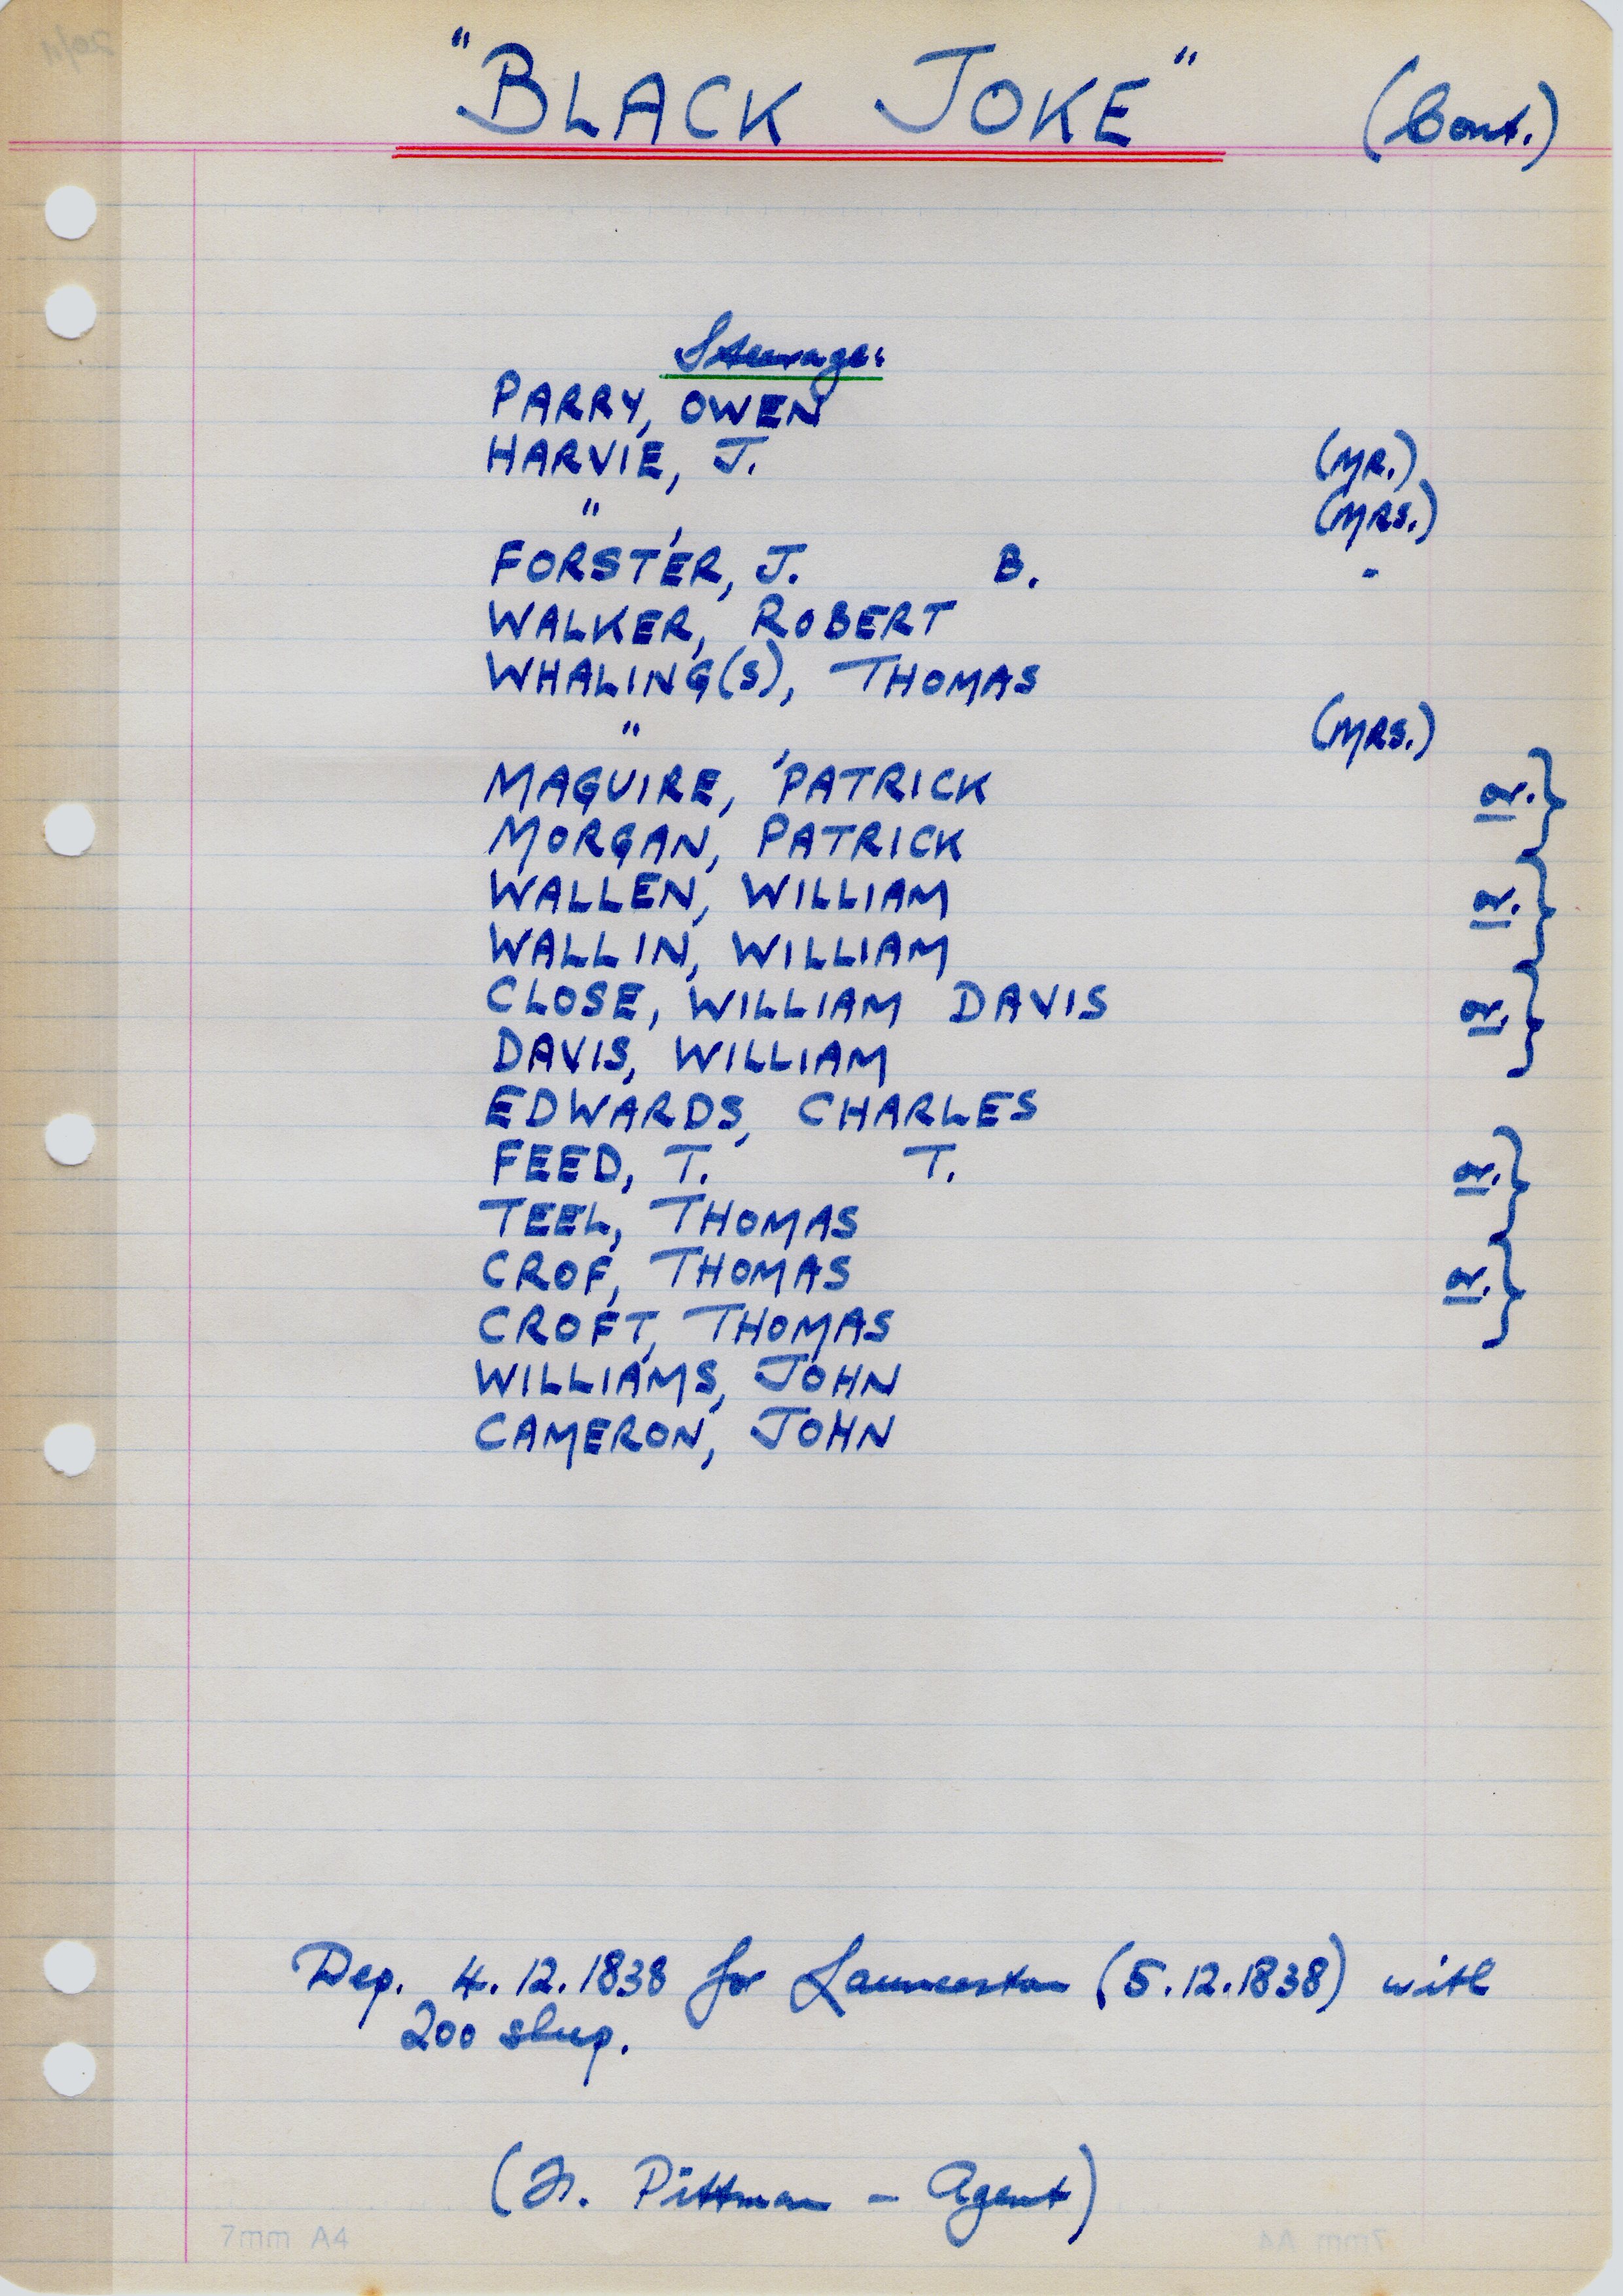 "BLACK JOKE" (Cont.)
Steerage:
PARRY, OWEN
HARVIE, J. (MR.)
" , (MRS.)
FORSTER, J. B. -
WALKER, ROBERT
WHALING(S), THOMAS
" , (MRS.)
MAGUIRE, PATRICK or. }
MORGAN, PATRICK
WALLEN, WILLIAM or. }
WALLIN, WILLIAM
CLOSE, WILLIAM DAVIS or. }
DAVIS, WILLIAM
EDWARDS, CHARLES
FEED, T. T. or. }
TEEL, THOMAS
CROF, THOMAS or. }
CROFT, THOMAS
WILLIAMS, JOHN
CAMERON, JOHN
Dep. 4.12.1838 for Launceston (5.12.1838) with
200 sheep.
( Pittman - Agent)
7mm A4
7mm A4